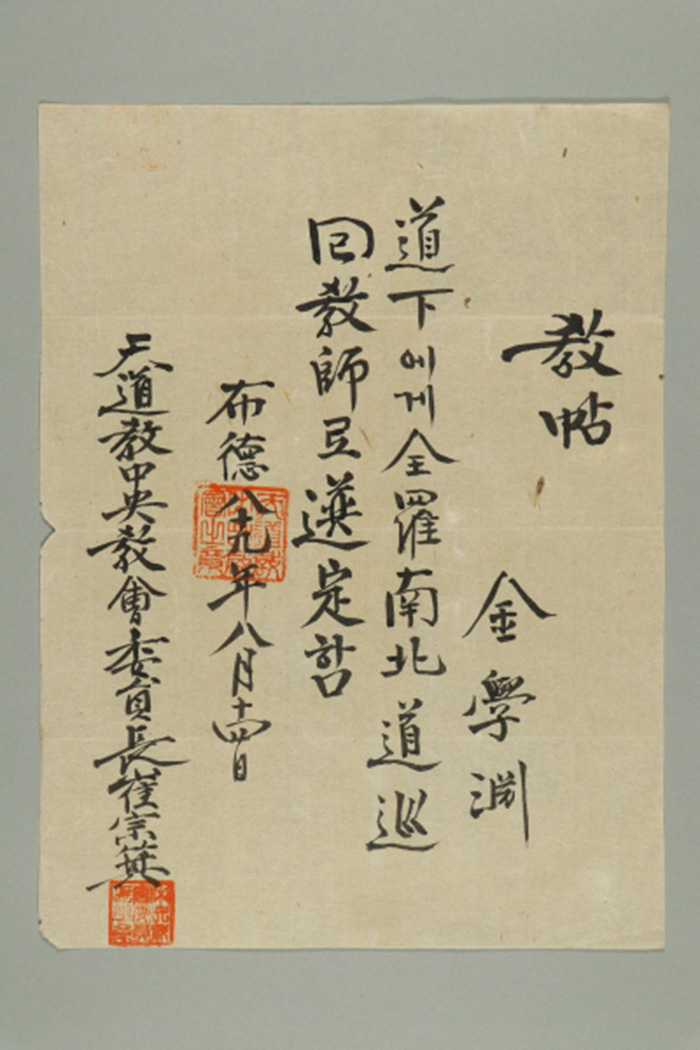 教帖
金學淵
道下에게全羅南北道巡
回教師로選定함
布德八十九年八月十四日
天道教中央教會委員長崔宗箕